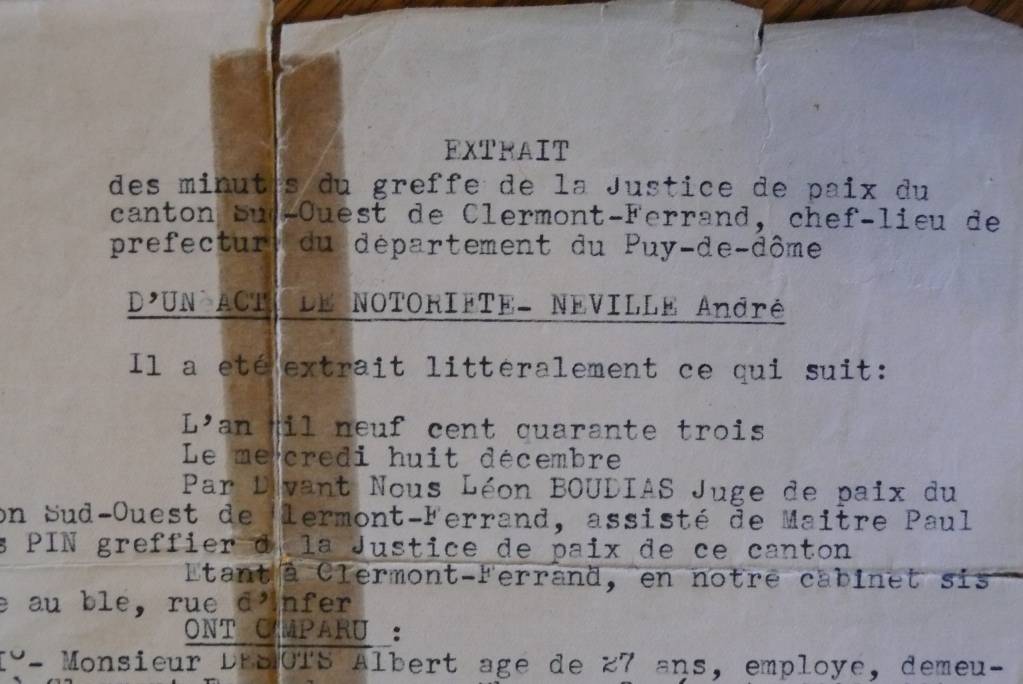 EXTRAIT
des minutes du greffe de la Justice de paix du
canton Sud-Ouest de Clermont-Ferrand, chef-lieu de
prefectur du département du Puy-de-dôme
D'UN ACTE DE NOTORIETE- NEVILLE André
Il a eté extrait littéralement ce qui suit:
L'an mil neuf cent quarante trois
Le mercredi huit décembre
Par Devant Nous Léon BOUDIAS Juge de paix du
on Sud-Ouest de Clermont-Ferrand, assisté de Maitre Paul
s PIN greffier de la Justice de paix de ce canton
Etant à Clermont-Ferrand, en notre cabinet sis
e au blé, rue d'Enfer
ONT COMPARU :
I°- Monsieur Albert age de 27 ans, employe, demeu-